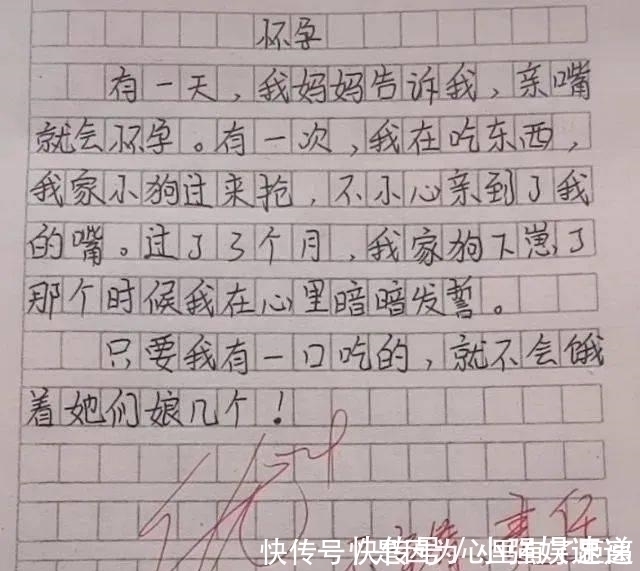 怀孕
有一天，我妈妈告诉我，亲嘴
就会怀孕。有一次，我在吃东西，
我家小狗过来抢，不小心亲到了我
的嘴。过了3个月，我家狗下崽了
那个时候我在心里暗暗发誓。
只要我有一口吃的，就不会饿
着她们娘几个！
责任
快传号